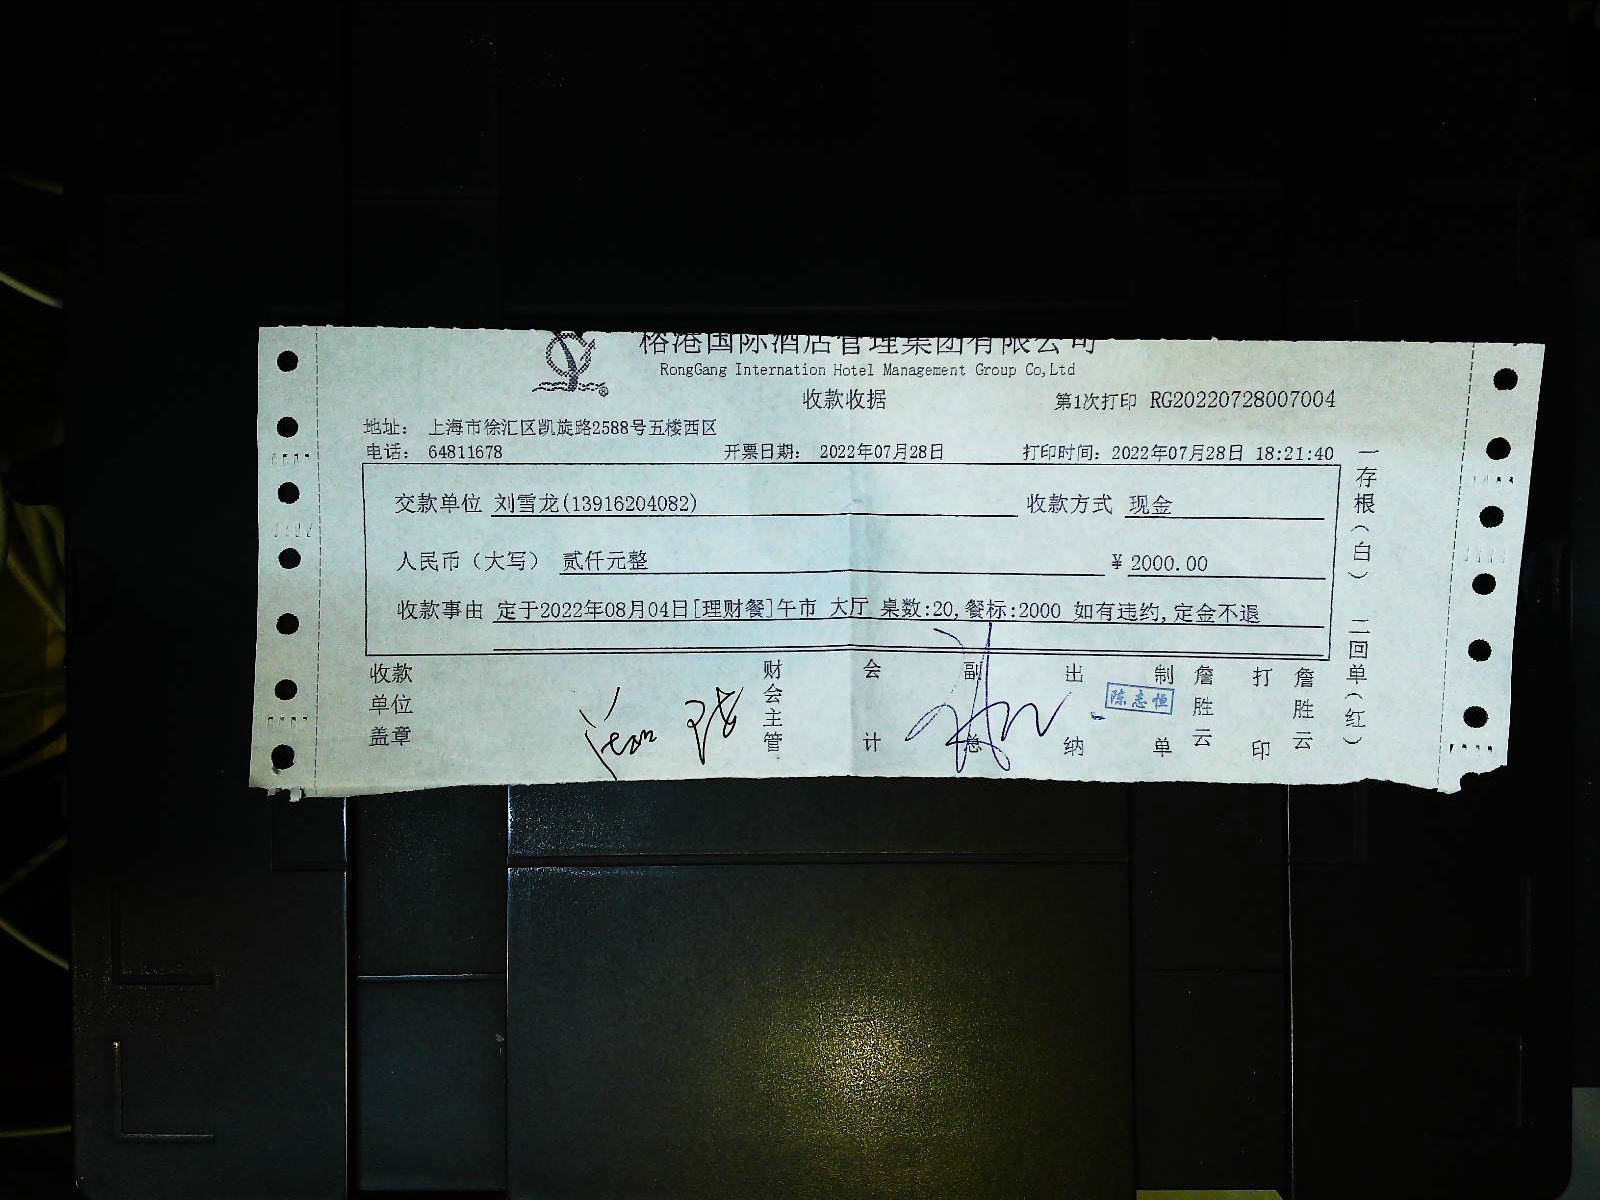 榕港国际酒店管理集团有限公司
RongGang Internation Hotel Management Group Co,Ltd
收款收据
第1次打印 RG20220728007004
地址： 上海市徐汇区凯旋路2588号五楼西区
电话： 64811678 开票日期： 2022年07月28日 打印时间：2022年07月28日 18:21:40
交款单位 刘雪龙(13916204082) 收款方式 现金
人民币（大写） 贰仟元整 ￥2000.00
收款事由 定于2022年08月04日[理财餐]午市 大厅 桌数:20,餐标:2000 如有违约,定金不退
收款单位盖章
财会主管
会计
副总
出纳
陈志恒
制单
詹胜云
打印
詹胜云
一存根（白） 二回单（红）